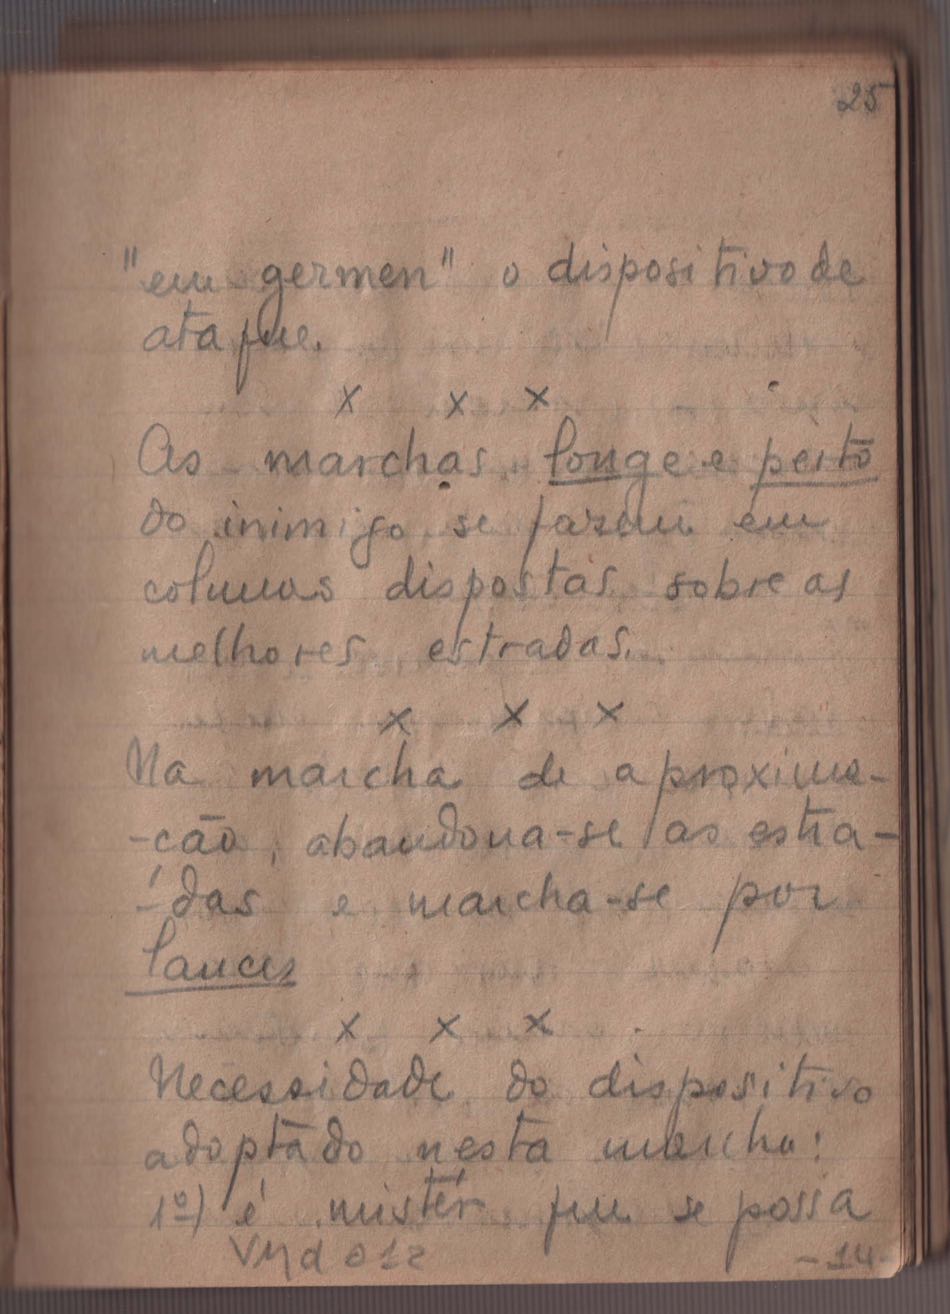 25
"em germen" o dispositivo de
ataque.
x x x
As marchas, longe e perto
do inimigo se fazem em
colunas dispostas sobre as
melhores estradas.
x x x
Na marcha de aproxima-
-cão, abandona-se as estra-
-das e marcha-se por
lances
x x x
Necessidade do dispositivo
adoptado nesta marcha:
1º) é mistér que se possa
-14-